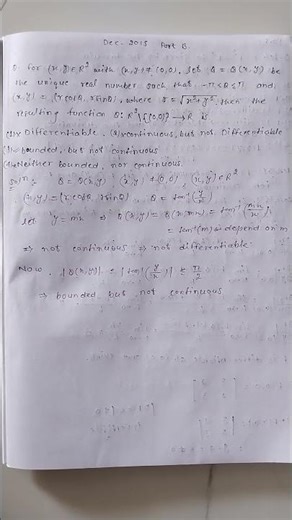 Dec-2015 Part B
Q. for (x,y) ∈ R² with (x,y) ≠ (0,0), let θ = θ(x,y)
be the unique real number such that -π < θ ≤ π and
(x,y) = (r cosθ, r sinθ), where r = √x²+y², then the
resulting function θ: R²\{(0,0)} → R is
(1) Differentiable (2) continuous, but not Differentiable
(3) bounded, but not continuous
(4) Neither bounded, nor continuous
Solⁿ: θ = θ(x,y) (x,y) ≠ (0,0) (x,y) ∈ R²
(x,y) = (r cosθ, r sinθ), θ = tan⁻¹(y/x)
let y = mx ⇒ θ(x,y) = θ(x,mx) = tan⁻¹(mx/x)
= tan⁻¹(m) → depend on m
⇒ not continuous ⇒ not differentiable
Now, |θ(x,y)| = |tan⁻¹(y/x)| ≤ π/2
⇒ bounded, but not continuous